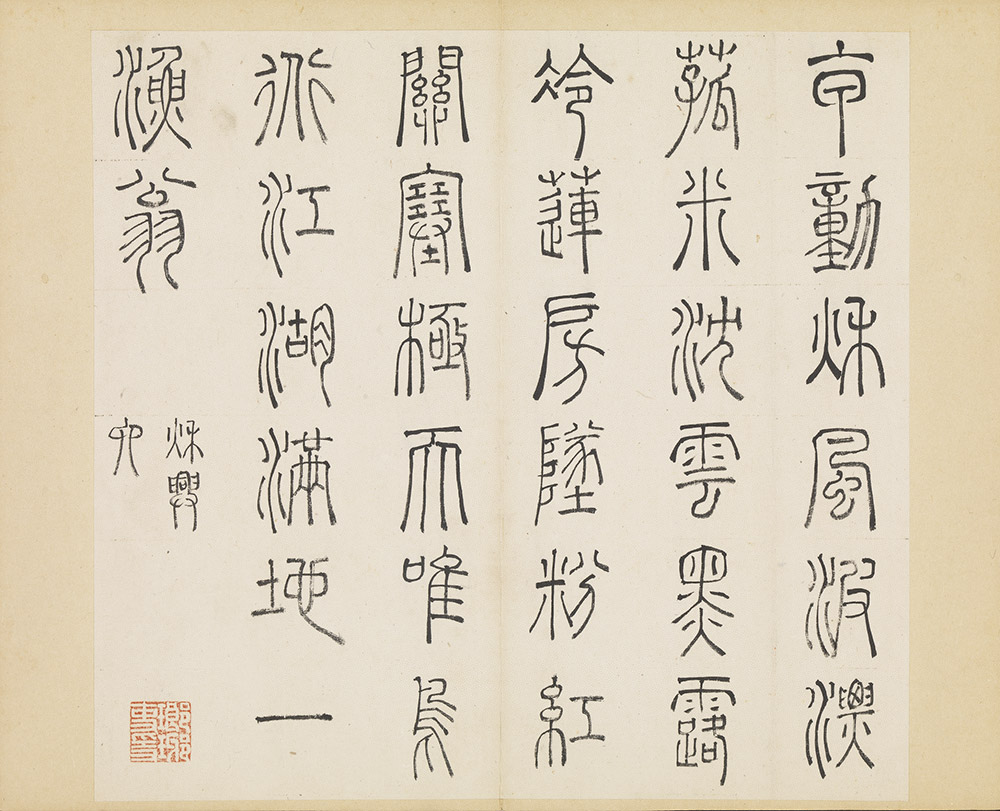 甲動秋風波漂
菰米沈雲黑露
冷蓮房墜粉紅
關塞極天唯鳥
道江湖滿地一
漁翁
秋興